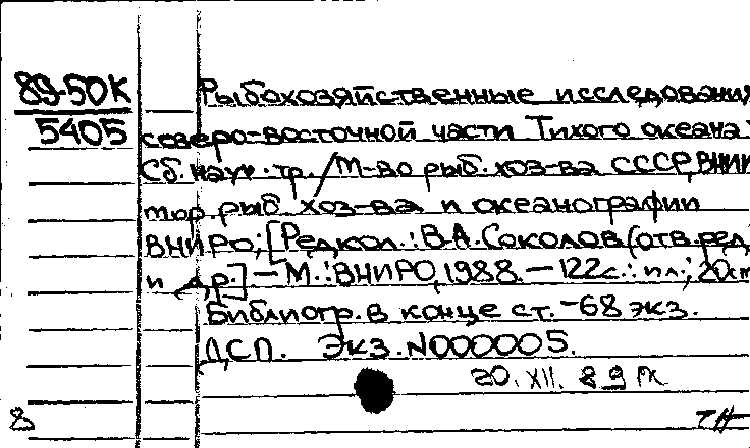 89-50К
5405
Рыбохозяйственные исследования
северо-восточной части Тихого океана:
Сб. науч. тр. / М-во рыб. хоз-ва СССР, ВНИИ
мор. рыб. хоз-ва и океанографии
ВНИРО; [Редкол.: В.А. Соколов (отв. ред.
и др.] – М.: ВНИРО, 1988. – 122 с.: ил.; 20 см
Библиогр. в конце ст. – 68 экз.
ДСП. Экз. N000005.
20. XII. 89